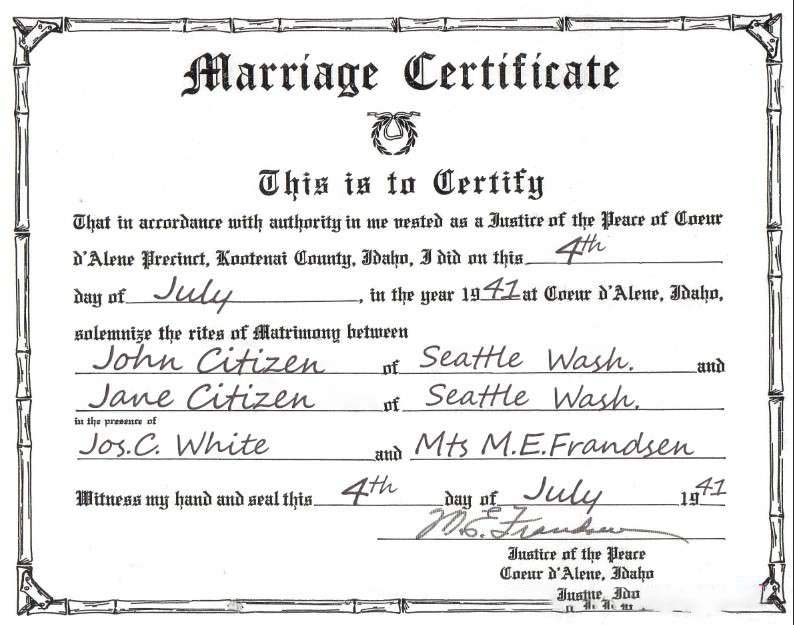 Marriage Certificate
This is to Certify
That in accordance with authority in me vested as a Justice of the Peace of Coeur
d'Alene Precinct, Kootenai County, Idaho, I did on this 4th
day of July, in the year 1941 at Coeur d'Alene, Idaho,
solemnize the rites of Matrimony between
John Citizen of Seattle Wash. and
Jane Citizen of Seattle Wash.
in the presence of
Jos.C. White and Mts M.E.Frandsen
Witness my hand and seal this 4th day of July 1941
M.E. Frandsen
Justice of the Peace
Coeur d'Alene, Idaho